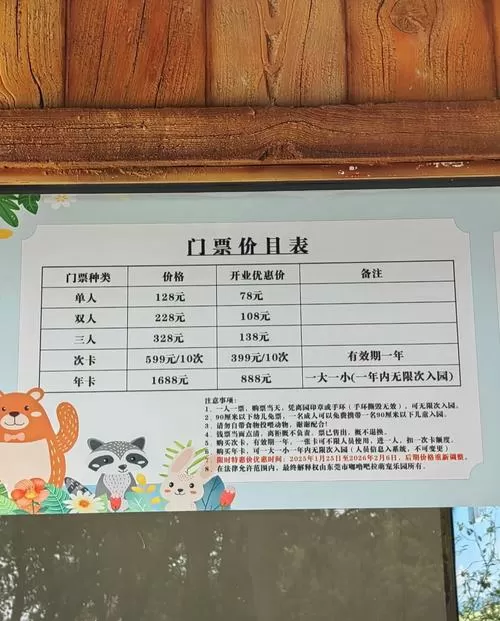 门票价目表
门票种类 价格 开业优惠价 备注
单人 128元 78元
双人 228元 108元
三人 328元 138元
次卡 599元/10次 399元/10次 有效期一年
年卡 1688元 888元 一大一小(一年内无限次入园)
注意事项：
1、一人一票，购票当天，凭离园印章或手环（手环撕毁无效），可无限次入园。
2、90厘米以下幼儿免票，一名成人可以免费携带一名90厘米以下儿童入园。
3、请勿自带食物投喂动物，谢谢配合！
4、钱票当面点清，离柜概不负责。票已售出，概不退换。
5、购买次卡，有效期一年，一张卡可不限人员使用，进一人，扣一次卡额度。
6、购买年卡，可一大一小一年内无限次入园（人员信息入系统，不可变更）
7、限时特惠价优惠时间：2025年1月25日至2026年2月6日，后期价格重新调整。
8、在法律允许范围内，最终解释权由东莞市嘟噜吧拉萌宠乐园所有。